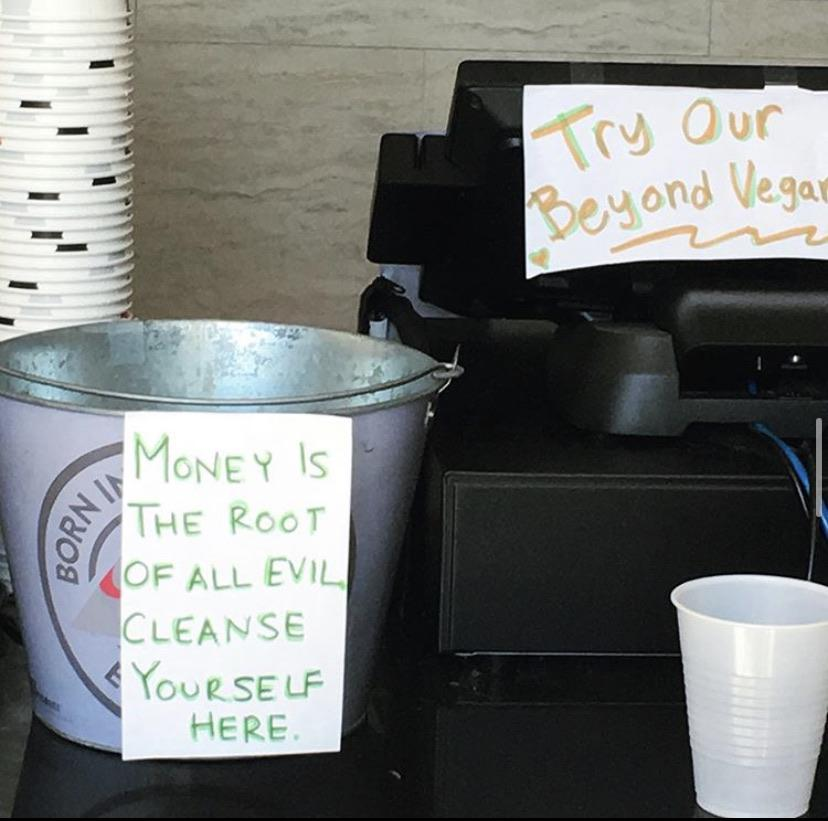 Try Our
Beyond Vegan
MONEY IS
THE ROOT
OF ALL EVIL
CLEANSE
YOURSELF
HERE.
BORN IN